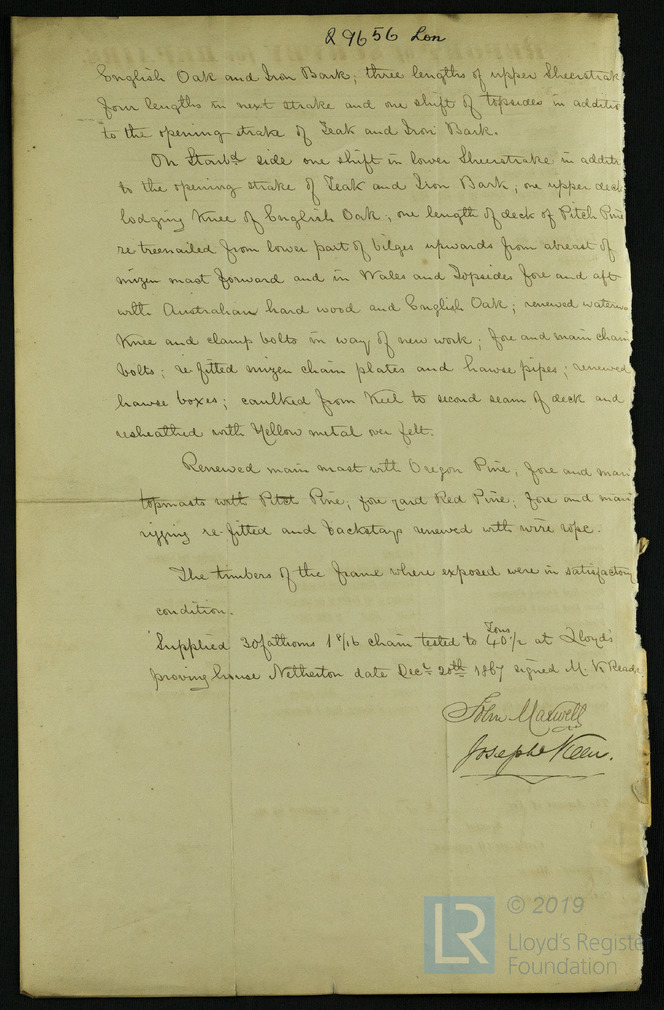 29656 Lon
English Oak and Iron Bark; three lengths of upper Sheerstrak
four lengths in next strake and one shift of topsides in additio
to the opening strake of Teak and Iron Bark.
On Starbd side one shift in lower Sheerstrake in additi
to the opening strake of Teak and Iron Bark; one upper deck
lodging Knee of English Oak; one length of deck of Pitch Pine
re treenailed from lower part of bilges upwards from abreast of
mizen mast forward and in Wales and Topsides fore and aft
with Australian hard wood and English Oak; renewed waterwa
Knee and clamp bolts in way of new work; fore and main chain
bolts; re-fitted mizen chain plates and hawse pipes; renewed
hawse boxes; caulked from Keel to second seam of deck and
resheathed with Yellow metal over felt.
Renewed main mast with Oregon Pine, fore and main
topmasts with Pitch Pine; fore yard Red Pine; fore and main
rigging re-fitted and backstays renewed with wire rope.
The timbers of the frame where exposed were in satisfactory
condition.
Supplied 30 fathoms 1 9/16 chain tested to 40 1/2 Tons at Lloyd's
proving house Netherton date Decr 20th 1867 signed M. V. Reade
John Maxwell
Joseph Keen.
LR
© 2019
Lloyd's Register
Foundation